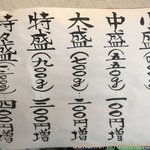 小盛
中盛(五五〇g)一〇〇円増
大盛(七〇〇g)二〇〇円増
特盛(九〇〇g)三〇〇円増
盛 四〇〇円増